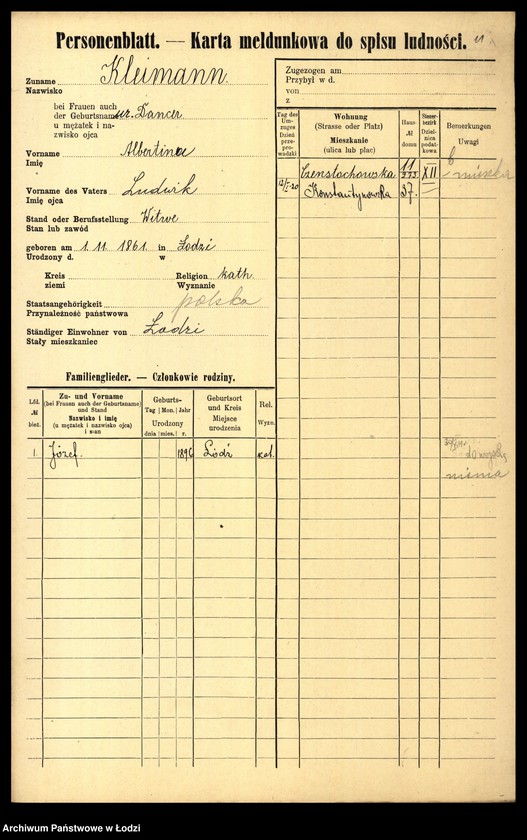 Personenblatt. — Karta meldunkowa do spisu ludności.
Zuname Kleimann.
Nazwisko
bei Frauen auch
der Geburtsname ur. Dancer
u mężatek i na-
zwisko ojca
Vorname Albertina
Imię
Vorname des Vaters Ludwik
Imię ojca
Stand oder Berufsstellung Witwe
Stan lub zawód
geboren am 1. 11. 1861. in Łodzi
Urodzony d. w
Kreis Religion kath.
ziemi Wyznanie
Staatsangehörigkeit polska
Przynależność państwowa
Ständiger Einwohner von Łodzi
Stały mieszkaniec
Zugezogen am
Przybył w d.
von
z
Tag des Um-zuges Dzień prze-prowadzki
Wohnung
(Strasse oder Platz)
Mieszkanie
(ulica lub plac)
Haus-№ domu
Steuer-bezirk Dzielnica podat-kowa
Bemerkungen
Uwagi
Czenstochowska 11/273 XII
12/I-20 Konstantynowska 37.
Familienglieder. — Członkowie rodziny.
Lfd. № bież.
Zu- und Vorname
(bei Frauen auch der Geburtsname)
und Stand
Nazwisko i imię
(u mężatek i nazwisko ojca)
i stan
Geburts-
Tag Mon. Jahr
Urodzony
dnia mies. r.
Geburtsort
und Kreis
Miejsce
urodzenia
Rel.
Wyzn.
1. Józef. 1896 Łódź kat.
niema
Archiwum Państwowe w Łodzi